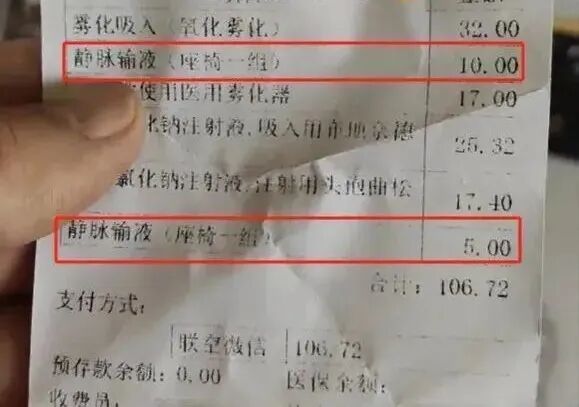 雾化吸入（氧化雾化） 32.00
静脉输液（座椅一组） 10.00
使用医用雾化器 17.00
化钠注射液,吸入用布地奈德 25.32
氯化钠注射液,注射用头孢曲松 17.40
静脉输液（座椅一组） 5.00
合计: 106.72
支付方式:
微信 106.72
预存款余额: 0.00 医保余额:
收费员: